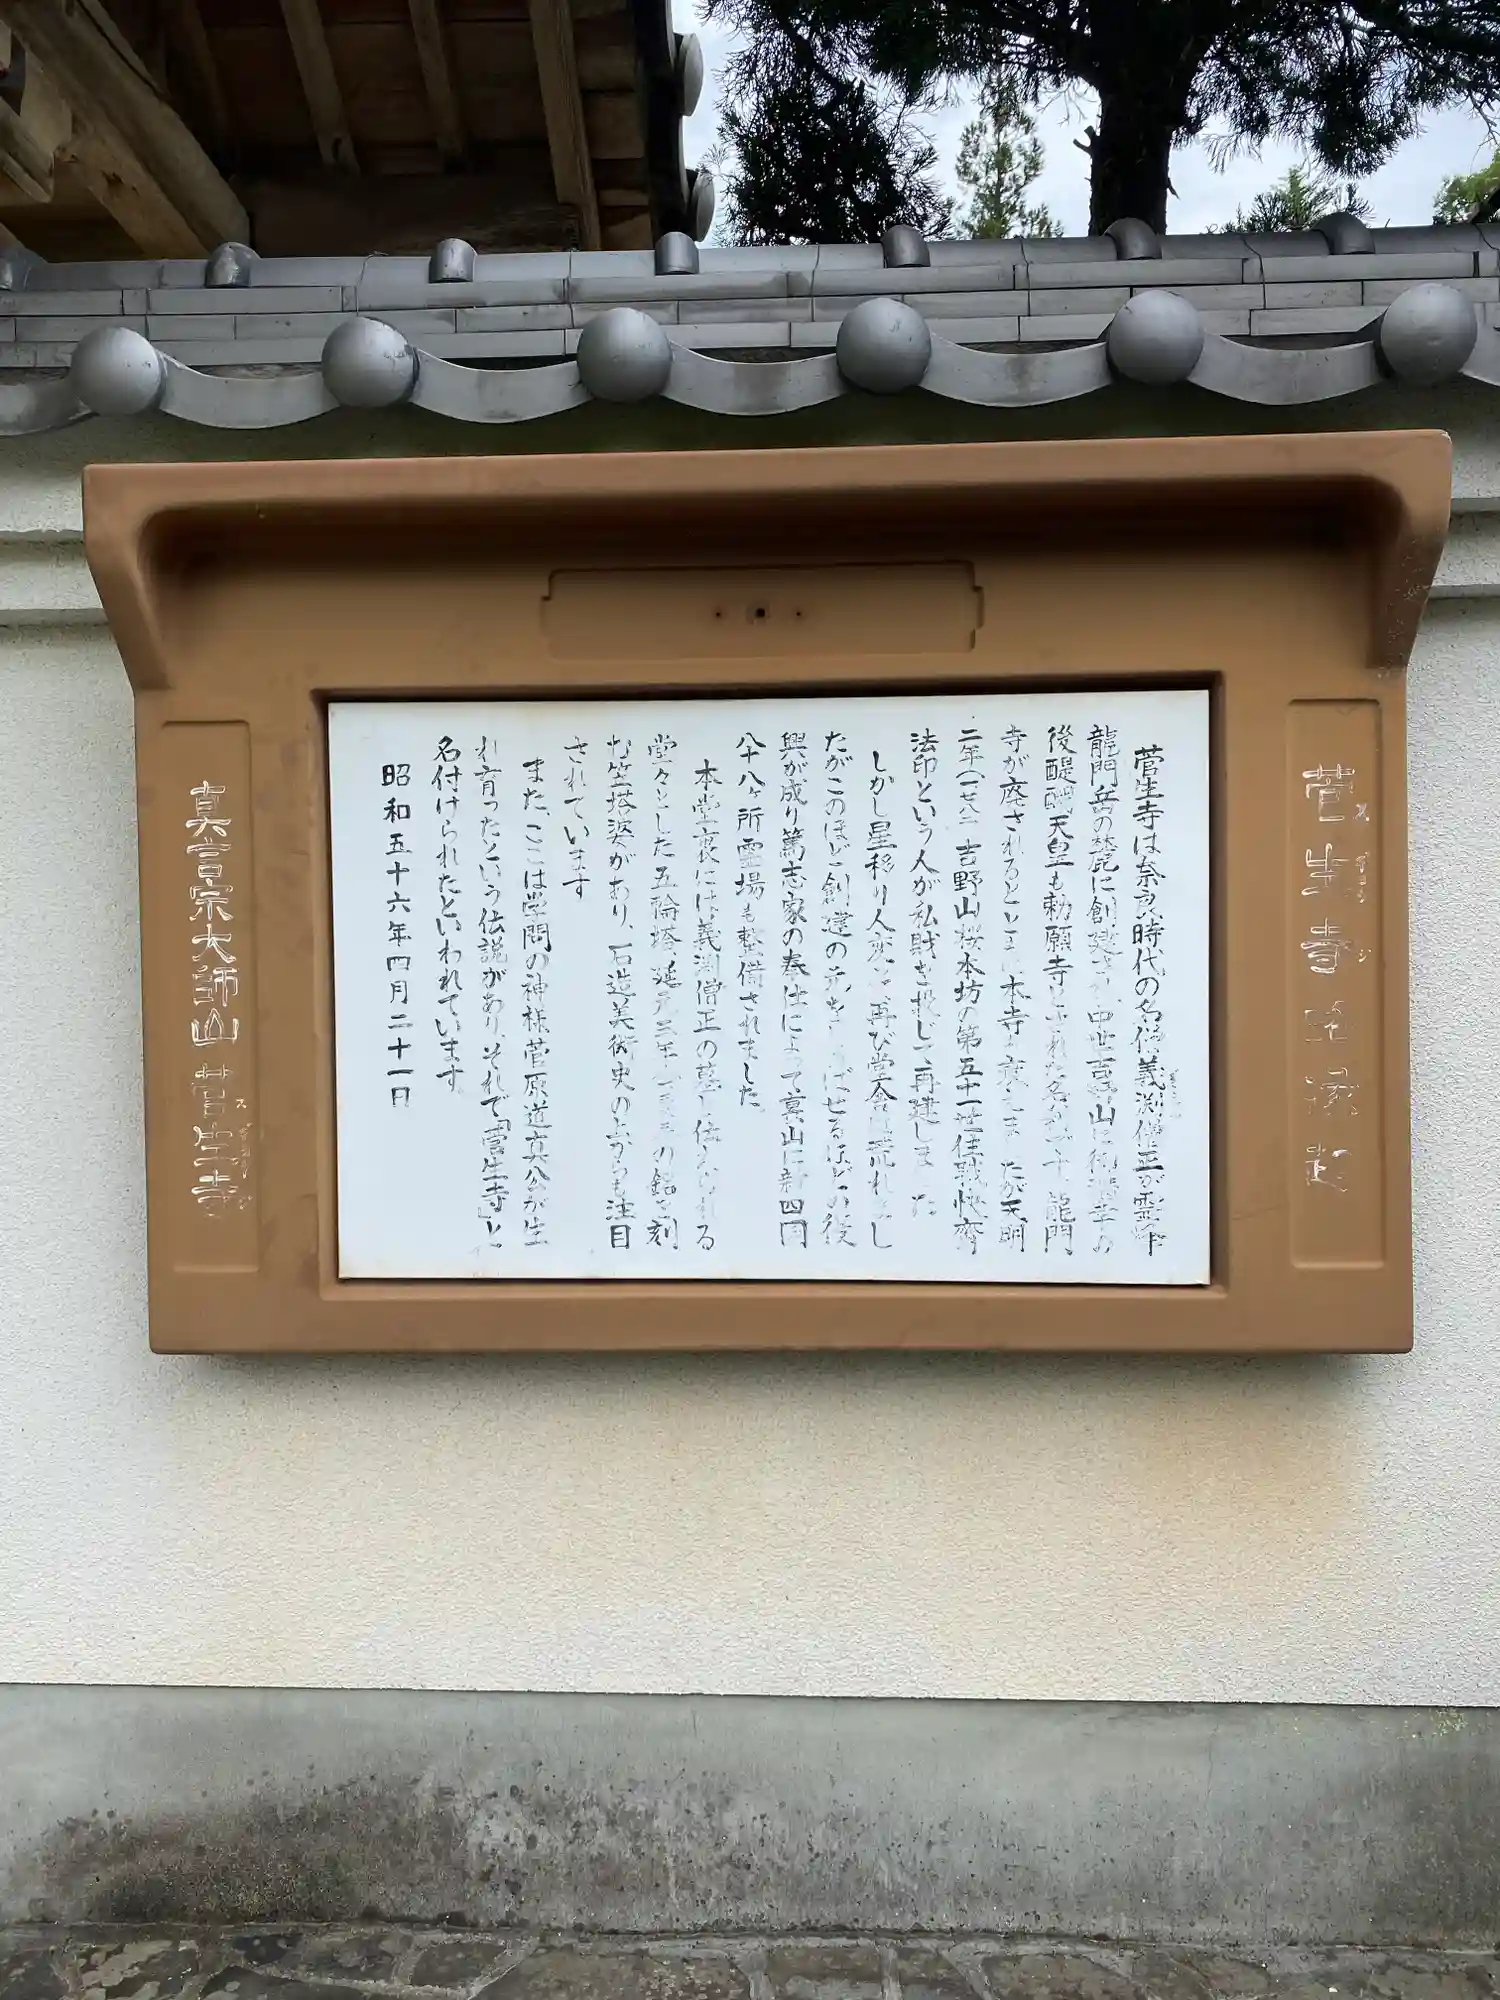 菅生寺
ス ジ
菅生寺は奈良時代の名僧義渕僧正が霊峰
龍門岳の麓に創建され中世吉野山に御潜幸の
後醍醐天皇も勅願寺とされた名刹です 龍門
寺が廃されるとともに本寺も衰えましたが天明
二年(一七八二 吉野山桜本坊の第五十一世住職快齊
法印という人が私財を投じて再建しました
しかし星移り人変って再び堂舎は荒れまし
たがこのほど創建の昔を ばせるほどの復
興が成り篤志家の奉仕によって裏山に新四国
八十八ヶ所霊場も整備されました。
本堂裏には義渕僧正の墓と伝えられる
堂々とした五輪塔 延元三年 の銘を刻
む笠塔婆があり、石造美術史の上からも注目
されています
また、ここは学問の神様菅原道真公が生
れ育ったという伝説があり、それで「菅生寺」と
名付けられたといわれています。
昭和五十六年四月二十一日
真言宗大師山 菅生寺